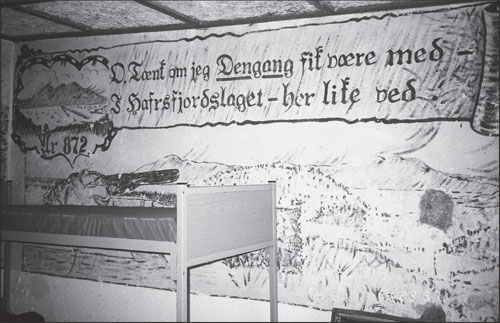 O, Tænk om jeg Dengang fik være med –
I Hafrsfjordslaget – her like ved
År 872